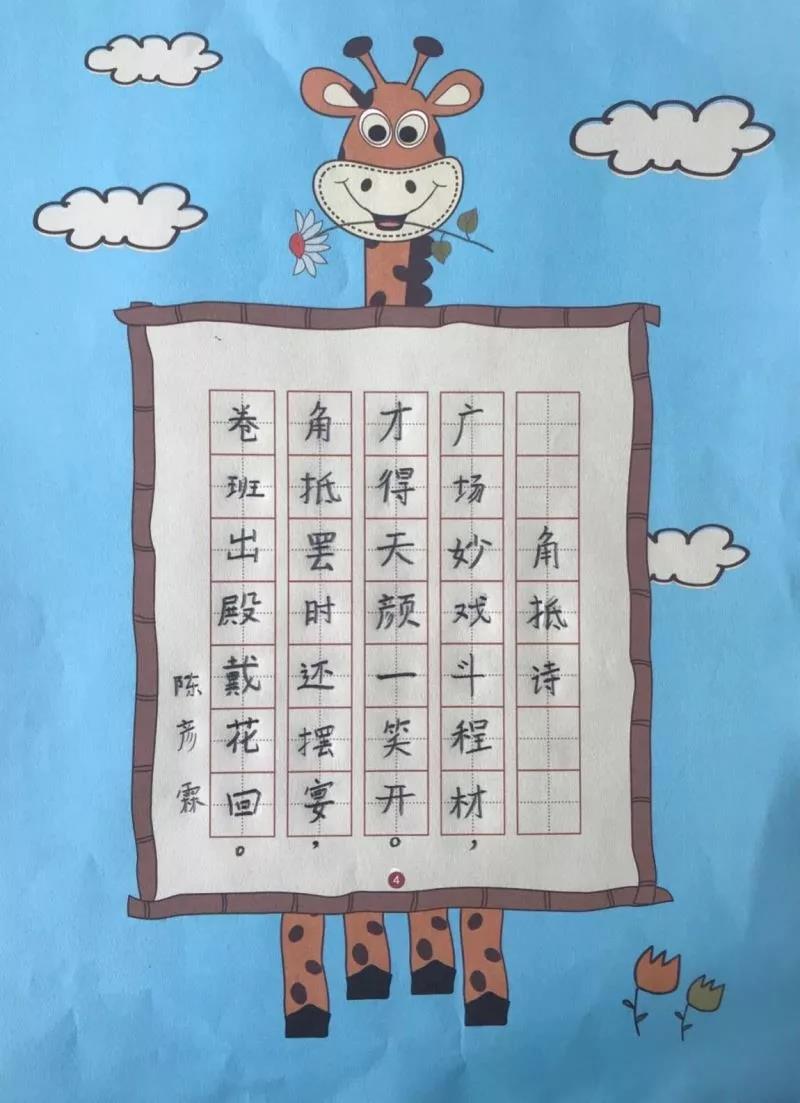 角抵诗
广场妙戏斗程材，
才得天颜一笑开。
角抵罢时还摆宴，
卷班出殿戴花回。
陈彦霖
4